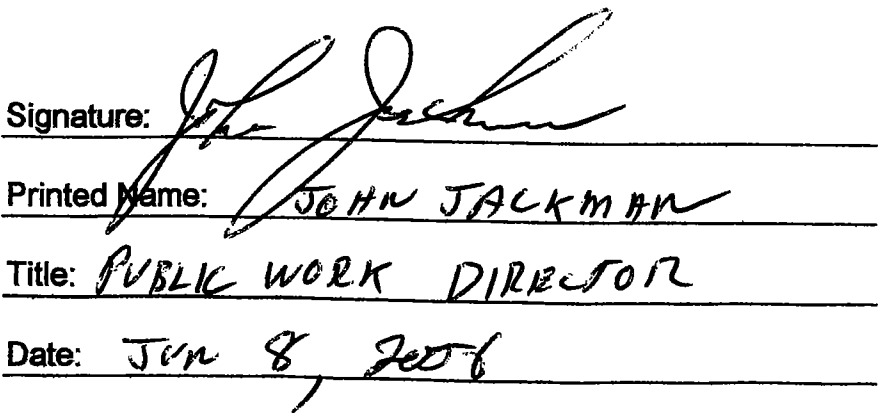 Signature: John Jackman
Printed Name: JOHN JACKMAN
Title: PUBLIC WORK DIRECTOR
Date: Jun 8, 2006